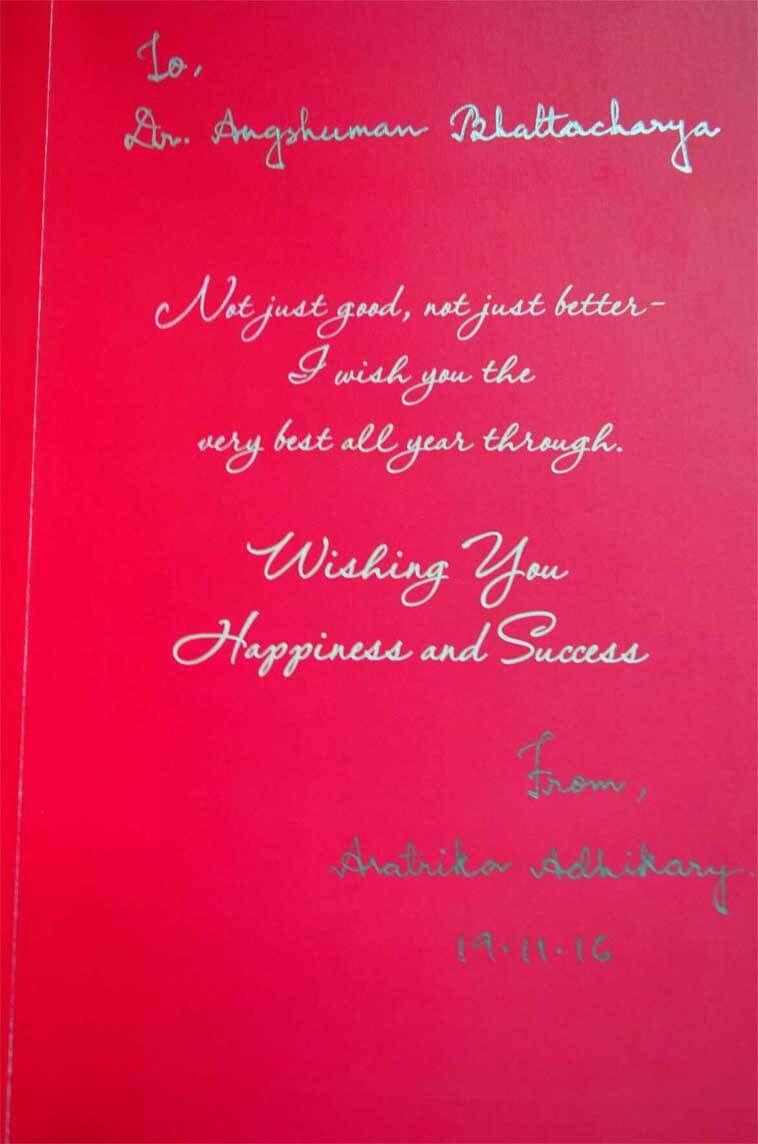 To,
Dr. Angshuman Bhattacharya
Not just good, not just better-
I wish you the
very best all year through.
Wishing You
Happiness and Success
From,
Aratrika Adhikary.
19.11.16